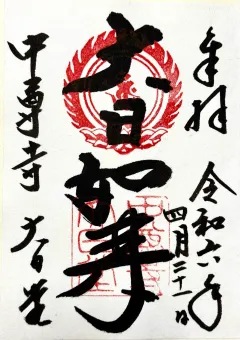 奉拝
令和六年
四月二十一日
大日如来
中尊寺 大日堂